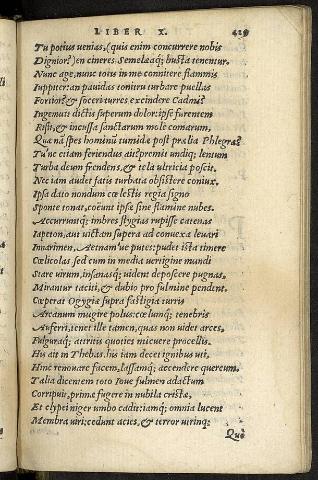 LIBER X. 429
Tu potius uenias, (quis enim concurrere nobis
Dignior?) en cineres Semelæaq; busta tenentur.
Nunc age, nunc totis in me connitere flammis
Iuppiter: an pauidas tonitru turbare puellas
Fortior? & soceri turres excindere Cadmi?
Ingemuit dictis superum dolor: ipse furentem
Risit, & incussa sanctarum mole comarum,
Quæ nã spes hominũ tumidæ post prælia Phlegræ?
Tu'ne etiam feriendus ait? premit undiq; lentum
Turba deum frendens, & tela ultricia poscit.
Nec iam audet fatis turbata obsistere coniux.
Ipsa dato nondum cœlestis regia signo
Sponte tonat, coëunt ipsæ sine flamine nubes.
Accurruntq; imbres stygias rupisse catenas
Iapeton, aut uictam supera ad conuexa leuari
Inarimen, Aetnam'ue putes: pudet ista timere
Cœlicolas sed cum in media uertigine mundi
Stare uirum, insanasq; uident deposcere pugnas,
Mirantur taciti, & dubio pro fulmine pendent.
Cœperat Ogygiæ supra fastigia turris
Arcanum mugire polus: cœlumq; tenebris
Auferri, tenet ille tamen, quas non uidet arces.
Fulguraq; attritis quoties micuere procellis.
His ait in Thebas, his iam decet ignibus uti,
Hinc renouare facem, lassamq; accendere quercum.
Talia dicentem toto Ioue fulmen adactum
Corripuit, primæ fugere in nubila cristæ,
Et clypei niger umbo cadit: iamq; omnia lucent
Membra uiri: cedunt acies, & terror utrinq;
Quò